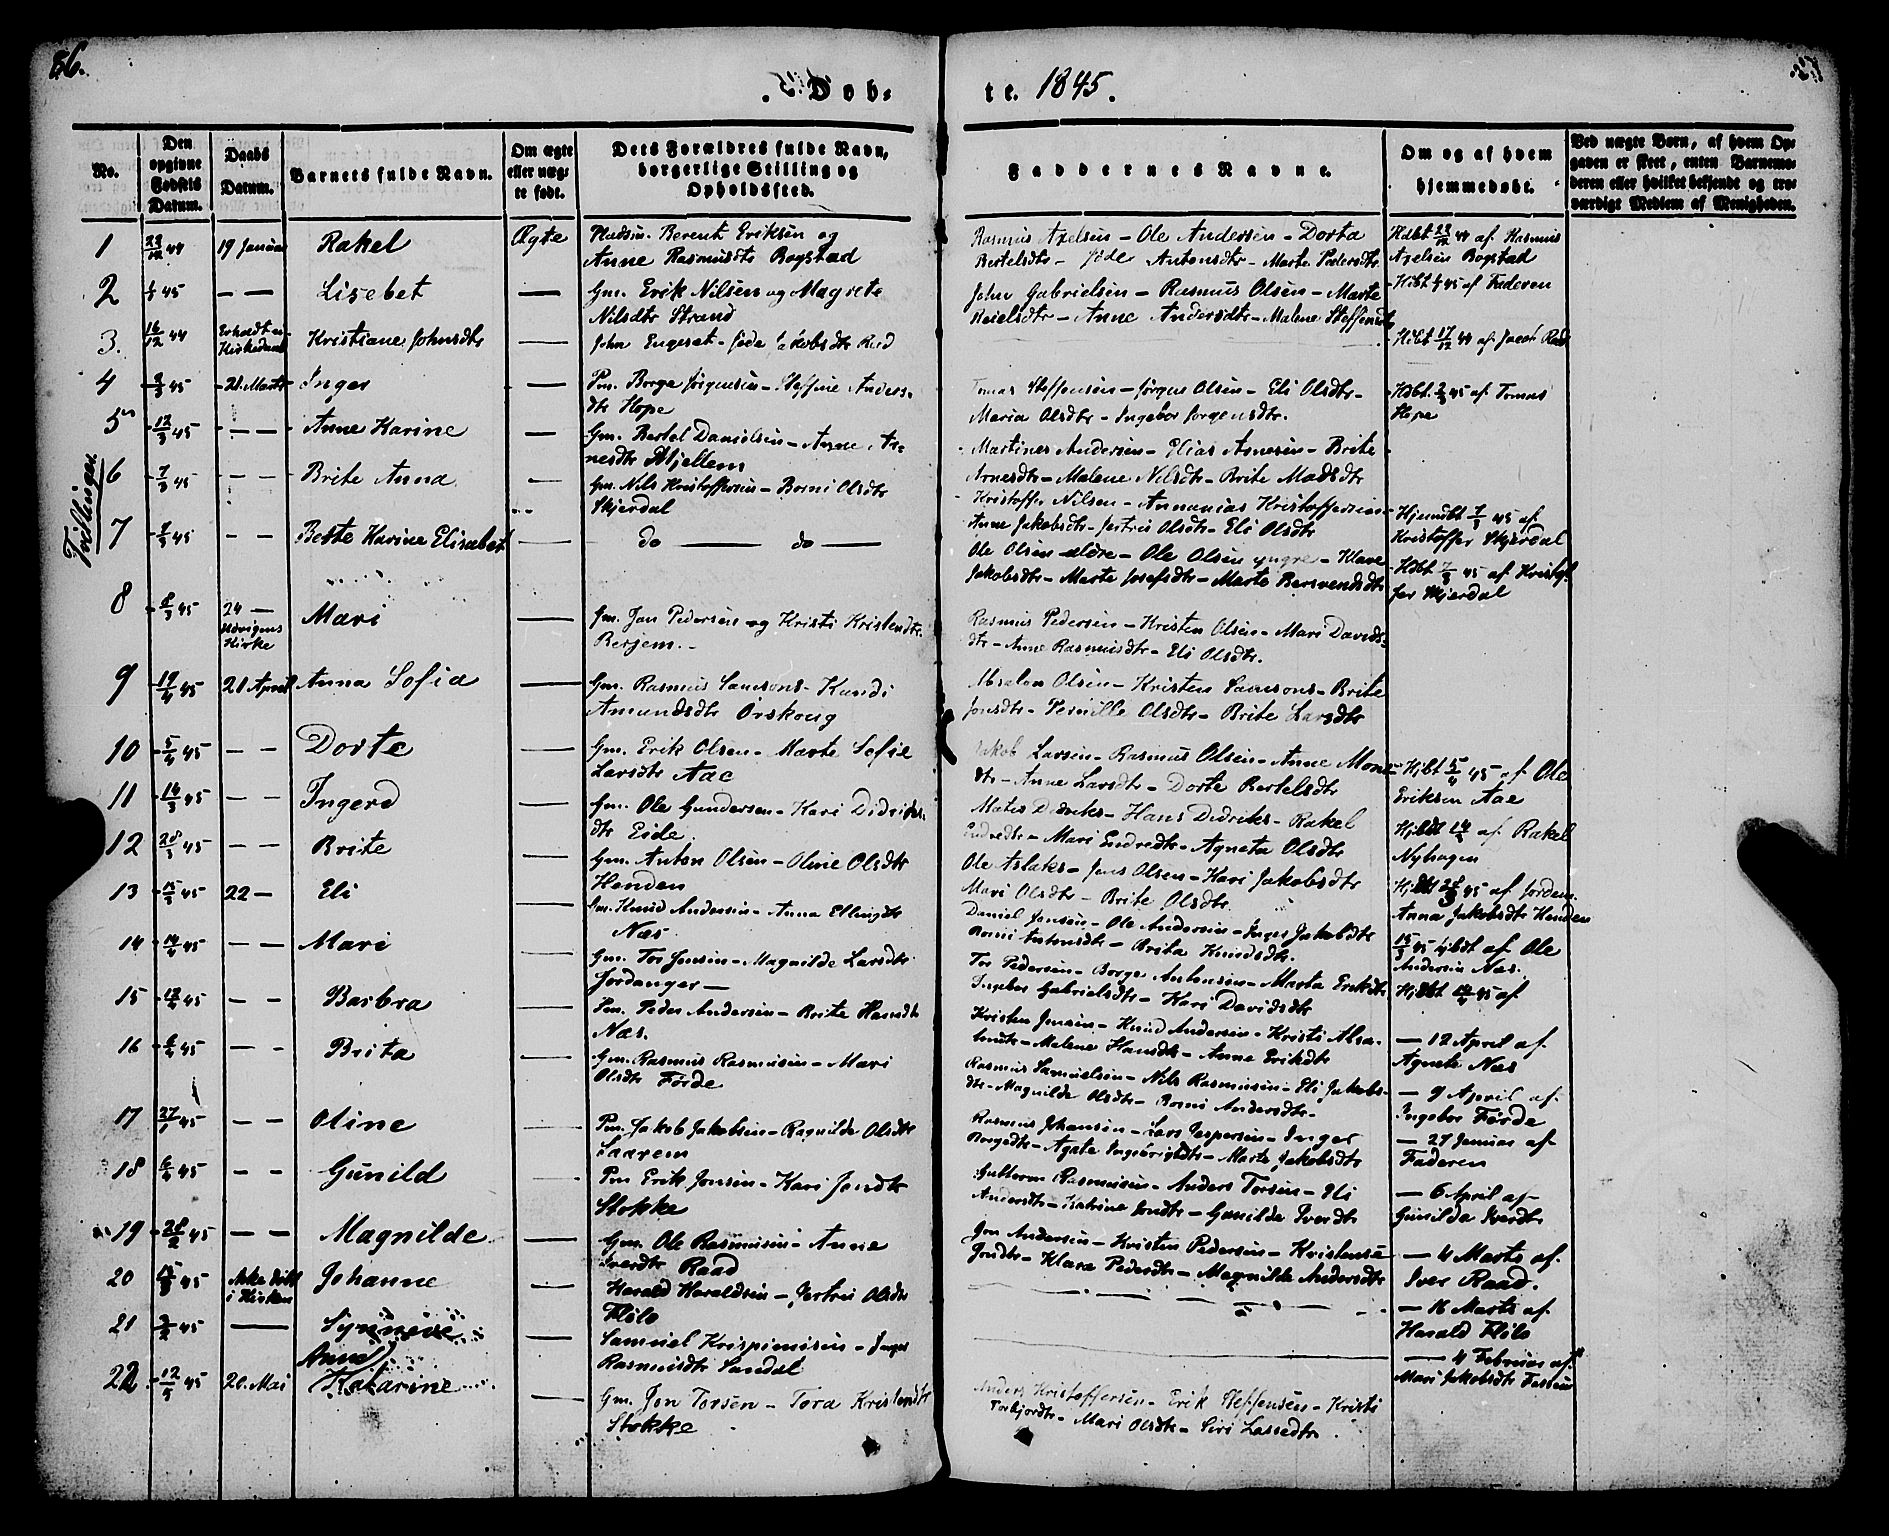 86.
Døb:
te. 1845.
No.
Den opgivne Fødsels Datum.
Daabs Datum.
Barnets fulde Navn.
Om ægte eller uægte født.
Dets Forældres fulde Navn, borgerlige Stilling og Opholdssted.
Faddernes Navne.
Om og af hvem hjemmedøbt.
Ved uægte Børn, af hvem Opgaven er skeet, enten Barnemoderen eller hvilket bekjendt og troværdigt Medlem af Menigheden.
1 22/12 44 19 Januar Rakel Ægte Pladsm. Berent Eriksen og
Anne Rasmusdtr Bogstad
Rasmus Axelsen - Ole Andersen - Dorta
Bertelsdtr - Antonsdtr - Marte Pedersdtr
Hdbt 22/12 44 af Rasmus
Axelsen Bogstad
2 45 — — Lisebet — Gm. Erik Nilsen og Magrete
Nilsdtr Strand
John Gabrielsen - Rasmus Olsen - Marte
Anne Andersdtr - Malene Steffensdtr
Hdbt 45 af Faderen
3. 16/12 44 Kristiane Johnsdtr — John Engeset - Jakobsdtr Rød
Hdbt 17/12 44 af Jacob
4 45 21. Marts Inger — Pm. Børge Jørgensen - Steffine Anders-
dtr Hope
Tomas Steffensen - Jørgen Olsen - Eli Olsdtr -
Maria Olsdtr - Ingebor Jørgensdtr.
Hdbt 45 af Tomas
Hope
5 12/3 45 — — Anne Karine — Gm. Bertel Danielsen - Anne Ar-
nesdtr Mjellem
Martines Andersen - Elias Arnesen - Brite
Arnesdtr - Malene Nilsdtr - Brite Madsdtr
Tvillinger.
6 7/3 45 — — Brite Anna — Gm. Nils Kristoffersen - Borni Olsdtr
Skjerdal
Kristoffer Nilsen - Annanias Kristoffersen -
Anne Jakobsdtr - Jertrus Olsdtr - Eli Olsdtr
Hjemdbt 7/3 45 af
Kristoffer Skjerdal
7 7/3 45 — — Berte Karine Elisabet — do — do —
Ole Olsen ældre - Ole Olsen yngre - Klare
Jakobsdtr - Marte Josefsdtr - Marte Bersvendsdtr
Hdbt 7/3 45 af Kristof-
fer Skjerdal
8 8/3 45 24 — Kirke Mari — Gm. Jon Pedersen og Kristi Kristendtr
Berjem. -
Rasmus Pedersen - Kristen Olsen - Mari Davids-
dtr - Anne Rasmusdtr - Eli Olsdtr.
9 45 21 April Anna Sofia — Gm. Rasmus Samsons - Kundi
Amundsdtr Ørskoug
Absalon Olsen - Kristen Samsons - Brite
Jonsdtr - Pernille Olsdtr - Brite Larsdtr
10 5/4 45 — — Dorte — Gm. Erik Olsen - Marte Sofie
Larsdtr Aae
Jakob Larsen - Rasmus Olsen - Anne Mons-
dtr - Anne Larsdtr - Dorte Bertelsdtr
Hjbt 5/4 45 af Ole
Eriksen Aae
11 14/3 45 — — Ingerd — Gm. Ole Gundersen - Kari Didriks-
dtr Eide
Mates Didriks - Hans Didriks - Rakel
Endredtr - Mari Endredtr - Agneta Olsdtr
Hjbdt 14/3 af Rakel
Nyhagen
12 28/3 45 — — Brite — Gm. Anton Olsen - Oline Olsdtr
Henden
Ole Aslaks - Jens Olsen - Kari Jakobsdtr
Mari Olsdtr - Brite Olsdtr
45 af Jordem.
Anna Jakobsdtr Henden
13 15/3 45 22 — Eli — Gm. Knud Andersen - Anna Ellingdtr
Næs.
Daniel Jensen - Ole Andersen - Inger Jakobdtr
Borni Antonsdtr - Brita Knudsdtr.
15/3 45 Hjbdt af Ole
Andersen Næs.
14 14/4 45 — — Mari — Gm. Tor Jensen - Magnilde Larsdtr
Jordanger —
Tor Pedersen - Børge Antonsen - Marta Erikdtr
Ingebor Gabrielsdtr - Kari Davidsdtr
Hjdbt 14/4 45 af
15 45 — — Barbra — Pm. Peder Andersen - Brite Hansdtr
Næs.
Kristen Jensen - Knud Andersen - Kristi
Malene Hansdtr - Anne Erikdtr
— 12 April af
Agnete Næs
16 45 — — Brita — Gm. Rasmus Rasmusen - Mari
Olsdtr Førde
Rasmus Samuelsen - Nils Rasmusen - Eli Jakobs-
dtr - Magnilde Olsdtr - Borni Andersdtr -
— 9 April af
Ingebor Førde
17 27/1 45 — — Oline — Pm. Jakob Jakobsen - Ragnilde Olsdtr
Saarem
Rasmus Johansen - Lars Jespersen - Inger
Børgedtr - Agate Ingebrigtsdtr - Marte Jakobsdtr
— 27 Januar af
Faderen
18 6/4 45 — — Gunild — Pm Erik Jonsen - Kari Jondtr
Stokke
Guttorm Rasmusen - Anders Torsen - Eli
Andersdtr - Katrine Jondtr - Gunilde Iverdtr
— 6 April af
Gunilda Iverdtr
19 28/2 45 — — Magnilde — Gm. Ole Rasmusen - Anne
Iverdtr Raad
Jon Andersen - Kristen Pedersen - Kristense
Jondtr - Klara Pedersdtr - Magnilde Andersdtr
— 4 Marts af
Iver Raad.
20 15/3 45 Ikke i Kirken Johanne — Harald Haraldsen - Jertrus Olsdtr
Fløló
— 16 Marts af
Harald Flölo
21 45 — Synneve
Anne — Samuel Krispinusen - Inger
Rasmusdtr Sandal
— 4 Februar af
Mari Jakobsdtr
22 12/5 45 20. Mai Katarine — Gm. Jon Torsen - Tora Kristendtr
Stokke
Anders Kristoffersen - Erik Steffensen - Kristi
Torbjordtr - Mari Olsdtr - Siri Lassedtr